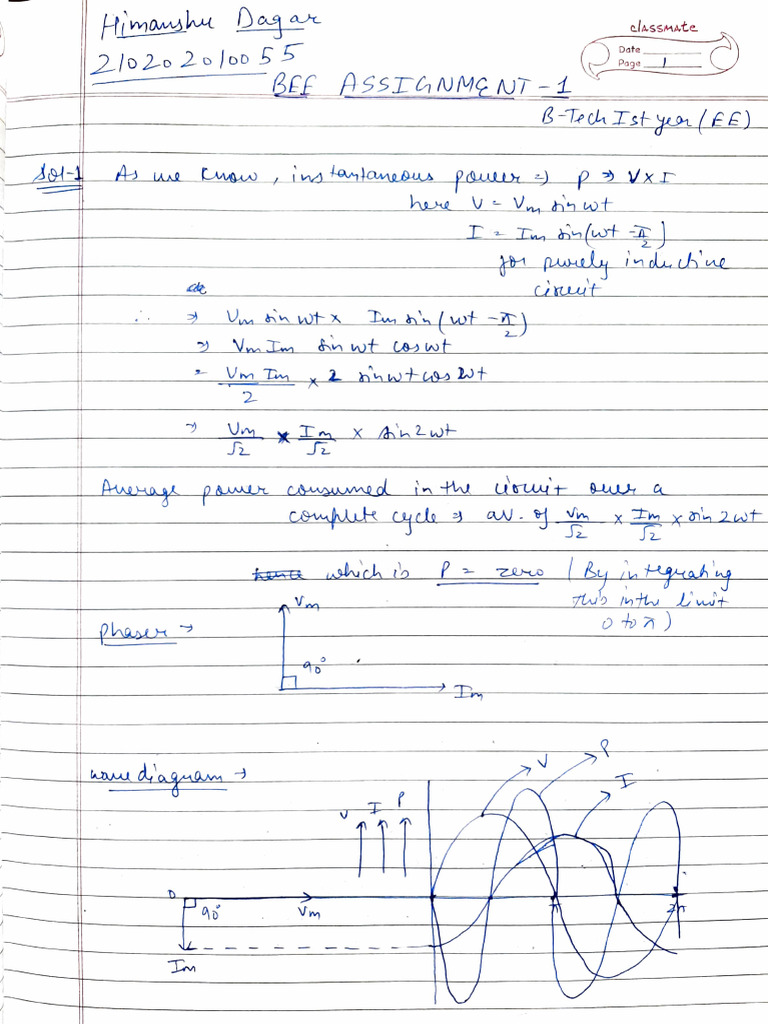 Himanshu Dagar
classmate
Date
Page 1
210202010055
BEE ASSIGNMENT-1
B-Tech Ist year (EE)
Sol-1 As we know, instantaneous power ⇒ P ⇒ V×I
here V = Vm sin wt
I = Im sin(wt - π/2)
for purely inductive
circuit
∴ ⇒ Vm sin wt × Im sin(wt - π/2)
⇒ Vm Im sin wt cos wt
= Vm Im/2 × 2 sin wt cos 2wt
⇒ Vm/√2 × Im/√2 × sin 2wt
Average power consumed in the circuit over a
complete cycle ⇒ av. of Vm/√2 × Im/√2 × sin 2wt
hence which is P = zero (By integrating
this in the limit
0 to π)
Vm
phaser →
90°
Im
wave diagram →
V
P
I
V I P
0
90°
Vm
π
2π
Im